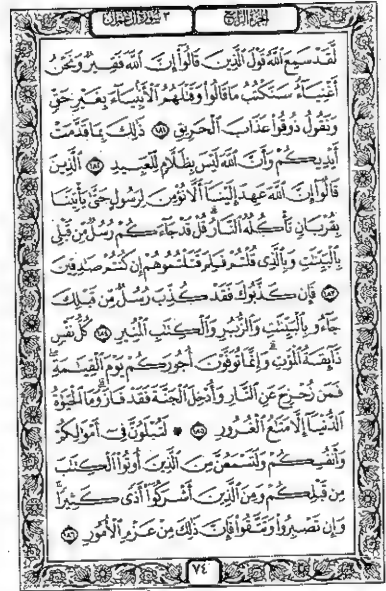 ٣ سورة آل عمران
الجزء الرابع
لَّقَدْ سَمِعَ اللَّهُ قَوْلَ الَّذِينَ قَالُوا إِنَّ اللَّهَ فَقِيرٌ وَنَحْنُ
أَغْنِيَاءُ سَنَكْتُبُ مَا قَالُوا وَقَتْلَهُمُ الْأَنبِيَاءَ بِغَيْرِ حَقٍّ
وَنَقُولُ ذُوقُوا عَذَابَ الْحَرِيقِ ١٨١ ذَٰلِكَ بِمَا قَدَّمَتْ
أَيْدِيكُمْ وَأَنَّ اللَّهَ لَيْسَ بِظَلَّامٍ لِّلْعَبِيدِ ١٨٢ الَّذِينَ
قَالُوا إِنَّ اللَّهَ عَهِدَ إِلَيْنَا أَلَّا نُؤْمِنَ لِرَسُولٍ حَتَّىٰ يَأْتِيَنَا
بِقُرْبَانٍ تَأْكُلُهُ النَّارُ قُلْ قَدْ جَاءَكُمْ رُسُلٌ مِّن قَبْلِي
بِالْبَيِّنَاتِ وَبِالَّذِي قُلْتُمْ فَلِمَ قَتَلْتُمُوهُمْ إِن كُنتُمْ صَادِقِينَ
١٨٣ فَإِن كَذَّبُوكَ فَقَدْ كُذِّبَ رُسُلٌ مِّن قَبْلِكَ
جَاءُو بِالْبَيِّنَاتِ وَالزُّبُرِ وَالْكِتَابِ الْمُنِيرِ ١٨٤ كُلُّ نَفْسٍ
ذَائِقَةُ الْمَوْتِ وَإِنَّمَا تُوَفَّوْنَ أُجُورَكُمْ يَوْمَ الْقِيَامَةِ
فَمَن زُحْزِحَ عَنِ النَّارِ وَأُدْخِلَ الْجَنَّةَ فَقَدْ فَازَ وَمَا الْحَيَوٰةُ
الدُّنْيَا إِلَّا مَتَاعُ الْغُرُورِ ١٨٥ * لَتُبْلَوُنَّ فِي أَمْوَالِكُمْ
وَأَنفُسِكُمْ وَلَتَسْمَعُنَّ مِنَ الَّذِينَ أُوتُوا الْكِتَابَ
مِن قَبْلِكُمْ وَمِنَ الَّذِينَ أَشْرَكُوا أَذًى كَثِيرًا
وَإِن تَصْبِرُوا وَتَتَّقُوا فَإِنَّ ذَٰلِكَ مِنْ عَزْمِ الْأُمُورِ ١٨٦
٧٤